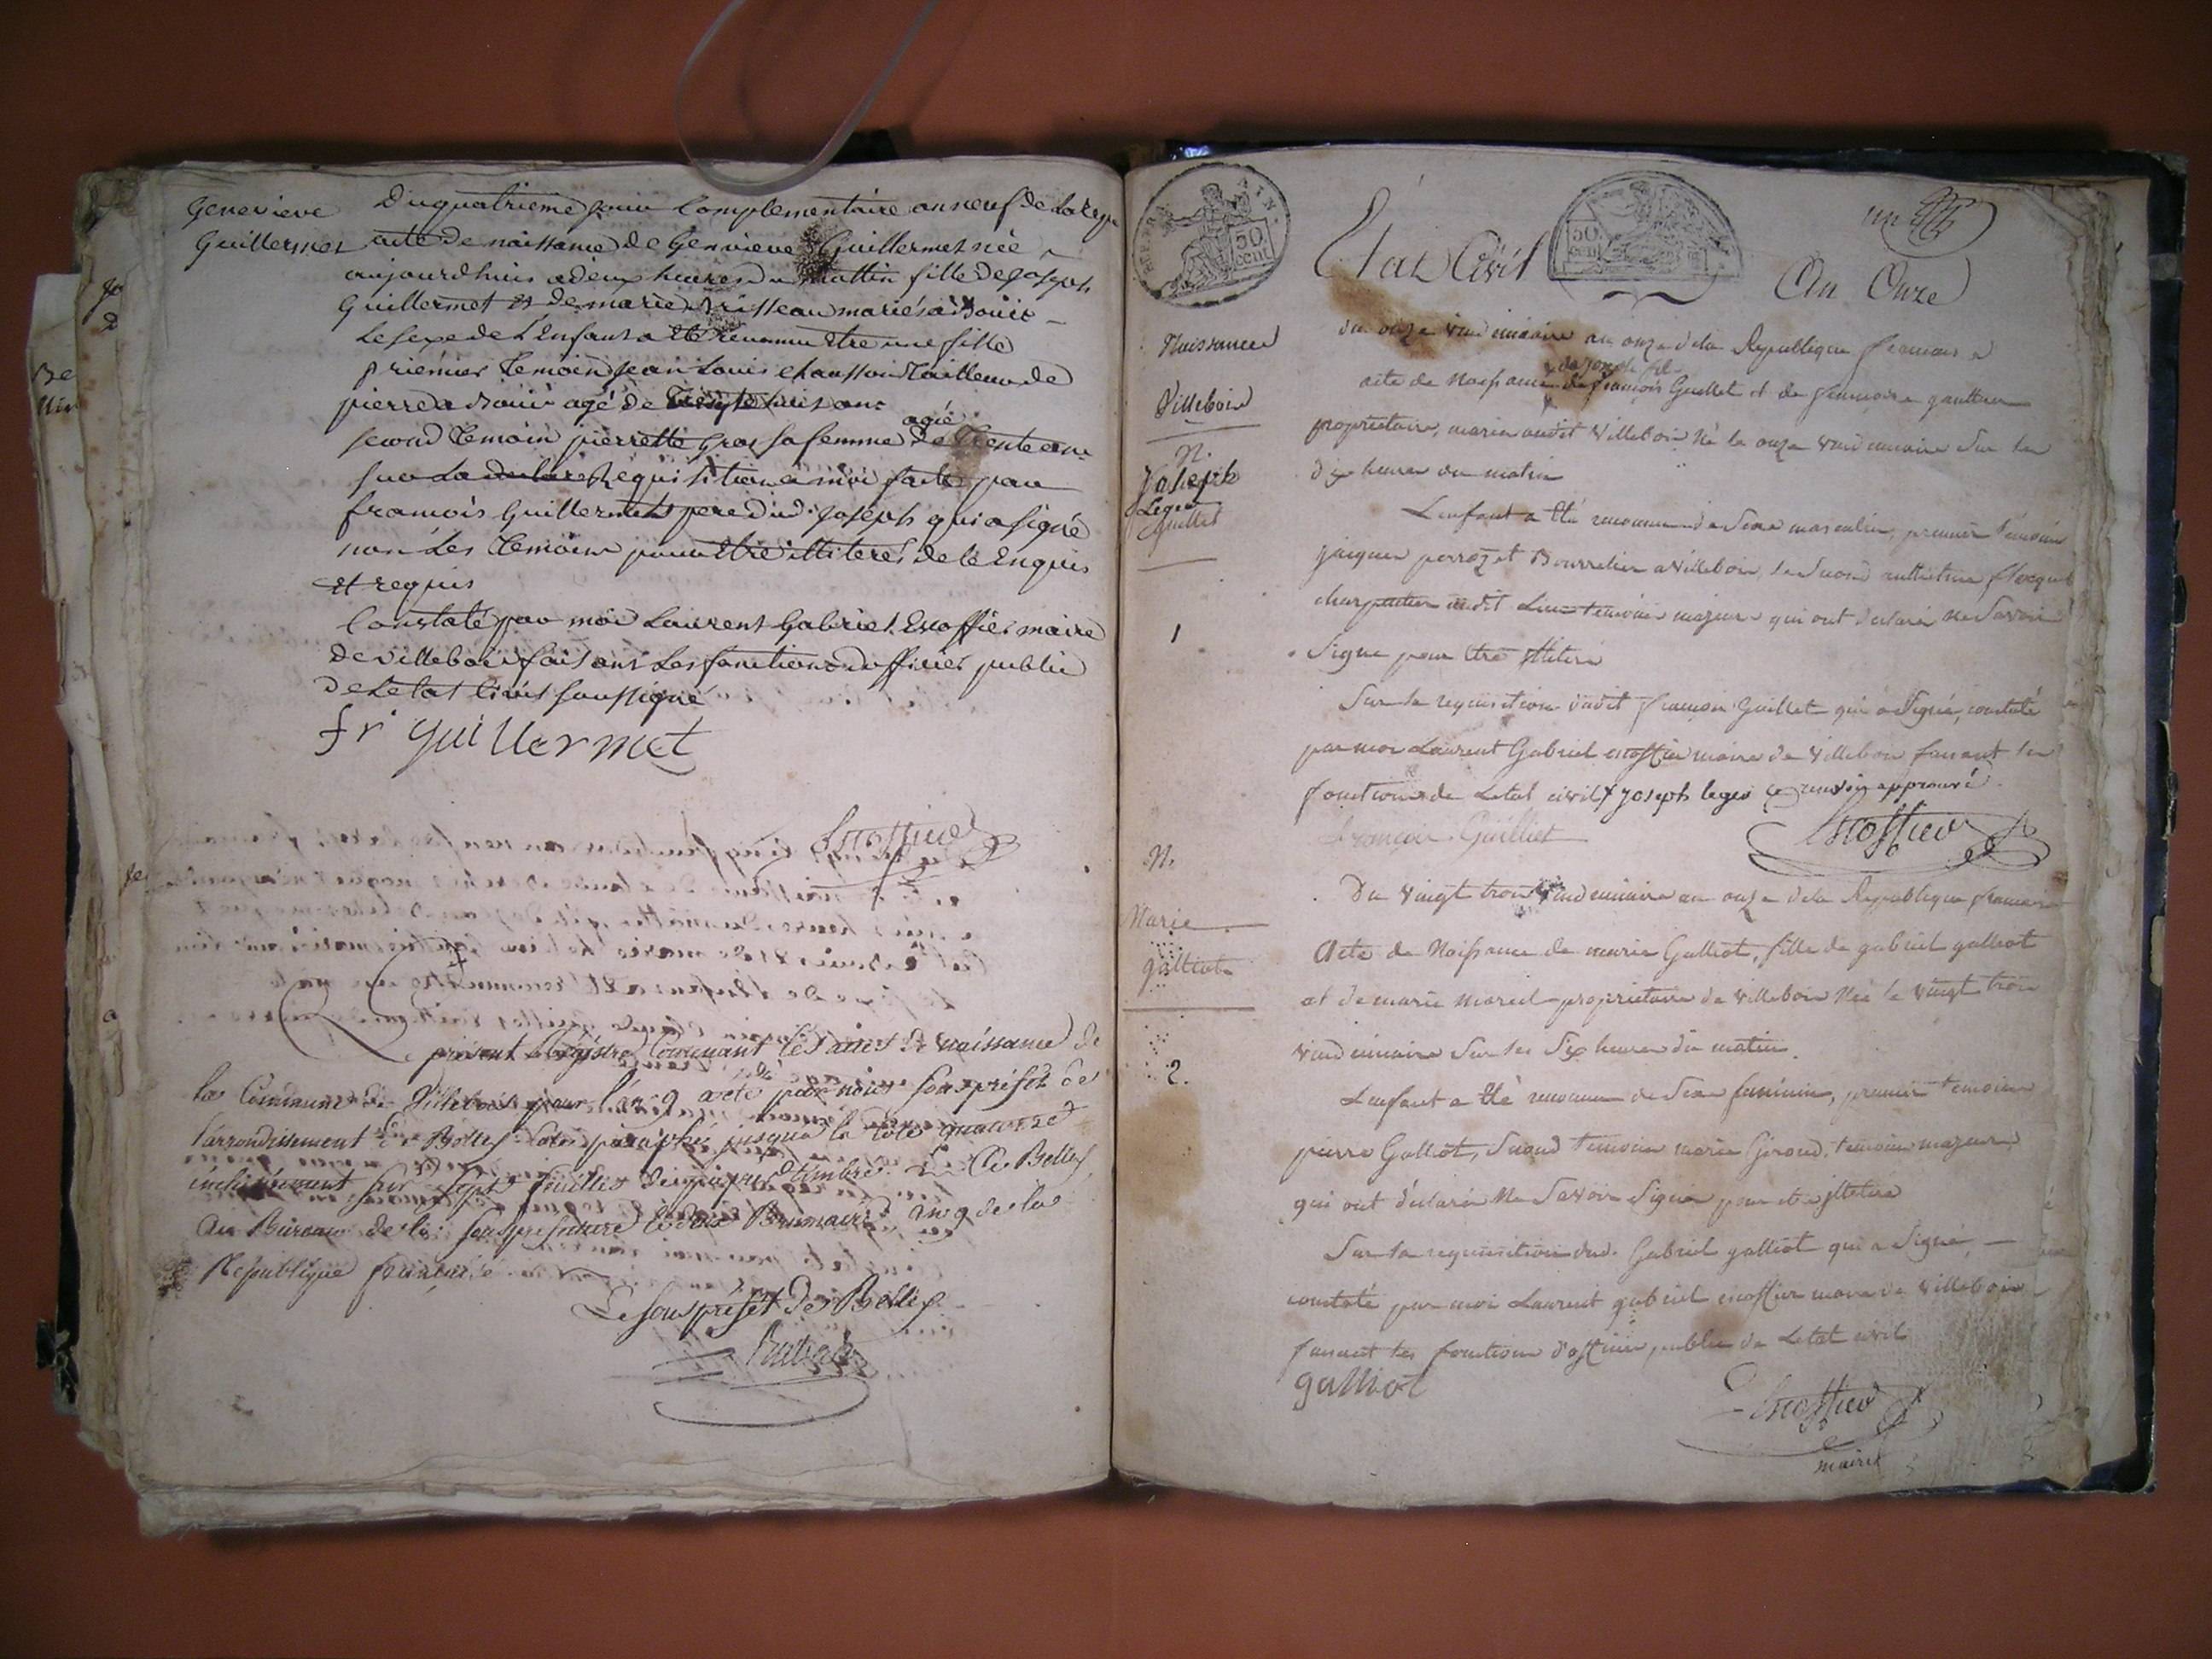 Genevieve
Guillermet
Du quatrieme jour Complementaire an neuf de la rep
acte de naissance de Genevieve Guillermet née
aujourdhuis a deux heures du mattin fille de joseph
Guillermet et de marie mariés a Bouis
Le sexe de L'Enfant a été reconnu etre une fille
premier temoin jean Louis chausson tailleur de
pierre a Bouis agé de huit ans
second temoin pierrette Gros sa femme agée de trente ans
sur La Requisition a moi faite par
francois Guillermet pere dud. joseph qui a signé
non Les temoins pour etre illiterés de ce Enquis
et requis
Constaté par moi Laurent Gabriel Escoffier maire
de villebois faisant Les fonctions d'officier public
de Letat Civil soussigné
fr guillermet
Escoffier
Le présent Régistre Contenant les actes de naissance de
la Commune de Villebois pour l'an 9 a été par nous sousprefet de
l'arrondissement de Belley coté paraphé jusqu'a la cote quatorze
inclusivement sur sept feuilles de papier timbré. A Belley
au Bureau de la sousprefecture le dix Brumaire an 9 de la
Republique française
Le sousprefet de Belley
50
cent
Etat Civil
50
cent
un
An Onze
Naissances
Villebois
N.
Joseph
Leger
Guillet
1
du onze vendemiaire an onze de la Republique francaise
de joseph fils
acte de Naissance de françois Guillet et de francoise
proprietaire, mariés audit Villebois Né le onze vendemiaire sur les
dix heures du matin
L'enfant a été reconnu de Sexe masculin, premier témoin
jacques perrozet Bourrelier a Villebois, le Second
charpentier audit Lieu temoins majeurs qui ont declaré Ne Savoir
Signer pour etre illiteré
Sur la requisition dudit francois Guillet qui a Signé, constaté
par moi Laurent Gabriel escoffier maire de Villebois faisant les
fonctions de Letat civil x joseph leger ce renvoi approuvé
François Guilliet
Escoffier
N.
Marie
galliot
2.
Du Vingt trois Vendemiaire an onze de la Republique francaise
Acte de Naissance de marie Galliot, fille de gabriel galliot
et de marie Marcel proprietaire de Villebois Née le vingt trois
vendemiaire Sur les Six heures du matin.
L'enfant a été reconnu de Sexe feminin, premier temoin
pierre Galliot, Second temoin marie Giroud, temoins majeurs,
qui ont declaré Ne Savoir Signer pour etre illiteré
Sur la requisition dud. Gabriel galliot qui a Signé
constaté par moi Laurent gabriel escoffier maire de Villebois
faisant les fonctions d'officier public de Letat civil
galliot
Escoffier
maire